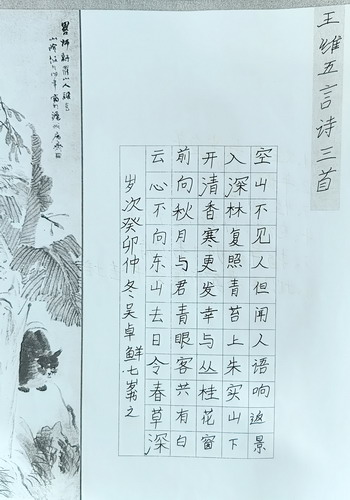 王维五言诗三首
空山不见人但闻人语响返景
入深林复照青苔上朱实山下
开清香寒更发幸与丛桂花窗
前向秋月与君青眼客共有白
云心不向东山去日令春草深
岁次癸卯仲冬吴卓鲜七书之